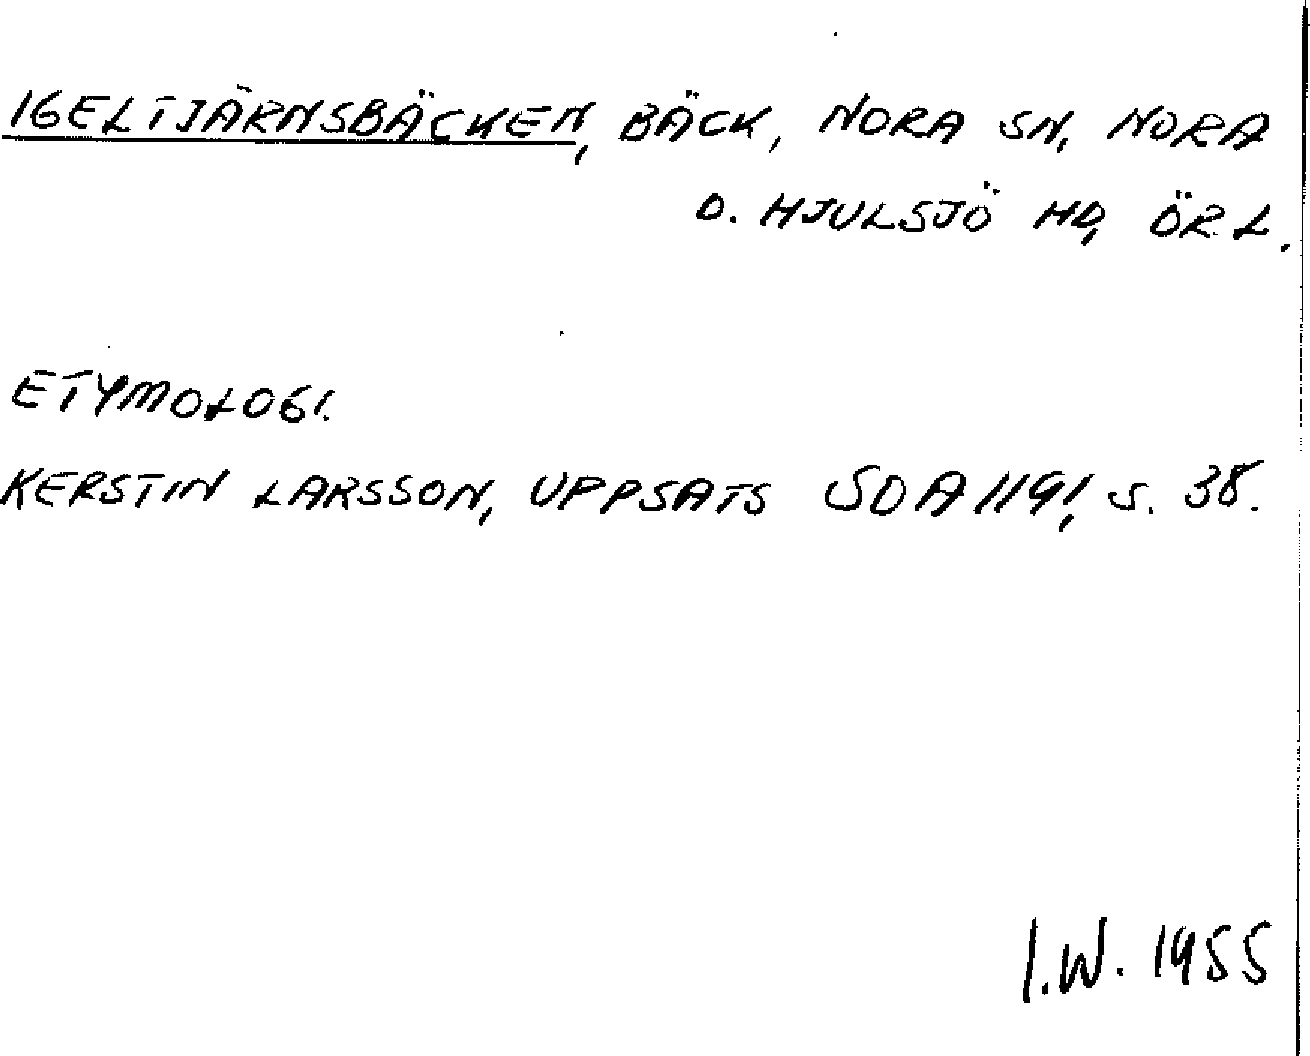 IGELTJÄRNSBÄCKEN, BÄCK, NORA SN, NORA
O. HJULSJÖ HD, ÖR. L.
ETYMOLOGI.
KERSTIN LARSSON, UPPSATS SOA 1191, S. 38.
I.W. 1955